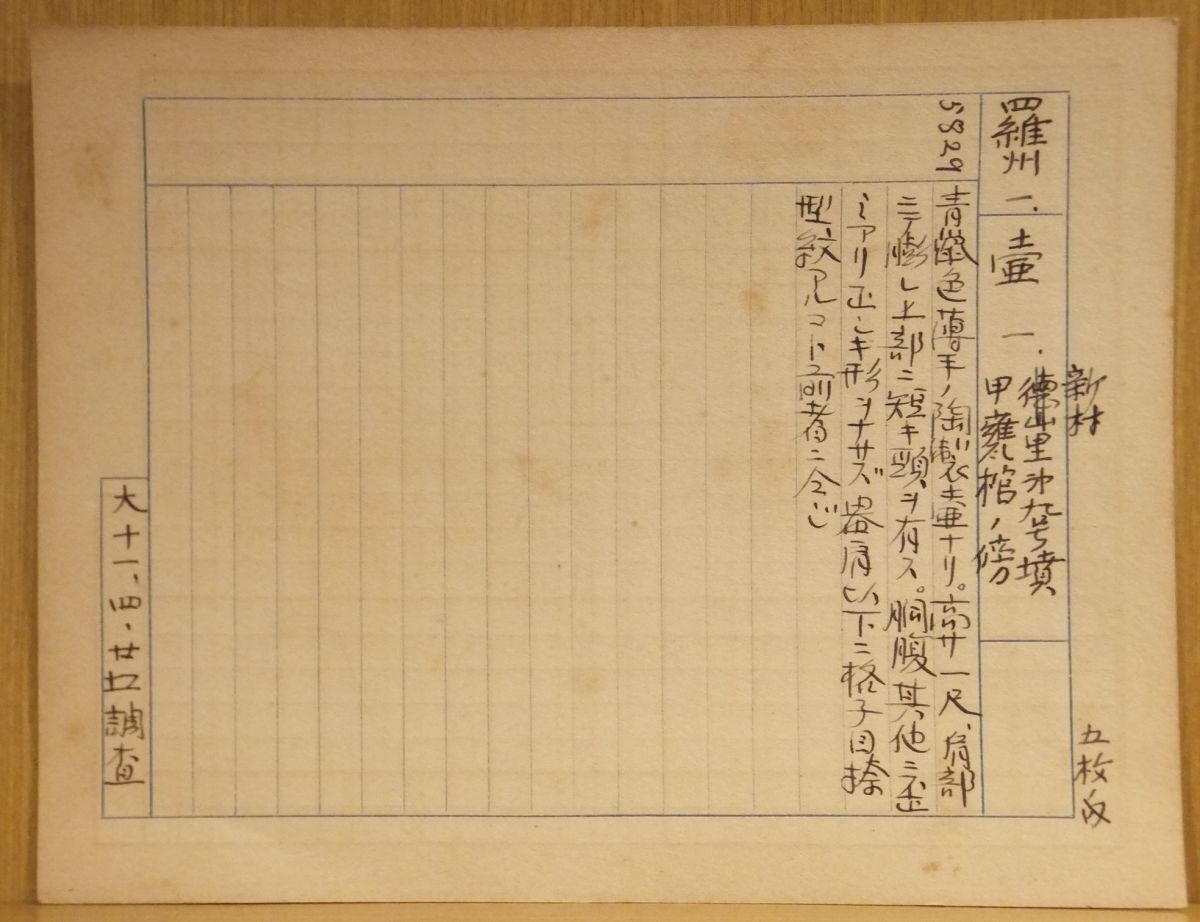 新村
羅州 一、 壷 一、 徳山里第九号墳
甲甕棺ノ傍
五枚内
5829
青𪉩色薄手ノ陶製壷ナリ。高サ一尺、肩部
ニテ膨レ上部ニ短キ頸ヲ有ス。胴腹其他ニ歪
ミアリ正シキ形ヲナサズ器肩以下ニ格子目捺
型紋アルコト前者ニ仝じ
大十一、四、廿五調査